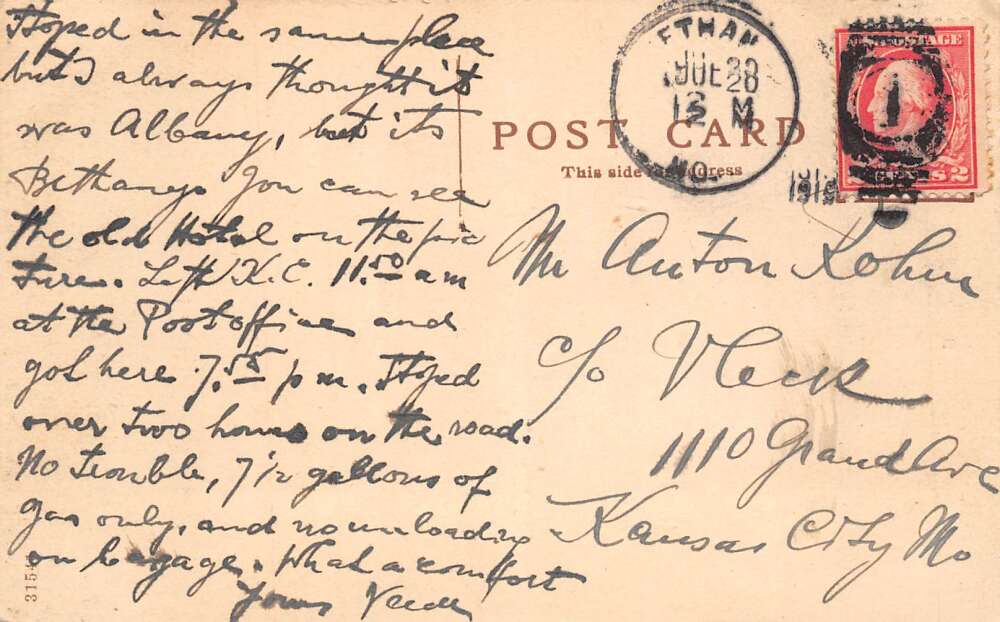 Stoped in the same place
but I always thought it
was Albany, but its
Bethany. You can see
the old Hotel on the pic
ture. Left K.C. 11.50 am
at the Postoffice and
got here 7.55 pm. Stoped
over two hours on the road.
No trouble, 7 1/2 gallons of
gas only, and no unloading
on bagage. What a comfort
Yours
POST CARD
This side address
ETHAN
MO.
12 M
1919
CENTS 2
Mr Anton Kohn
c/o Vleck
1110 Grand Ave
Kansas City Mo